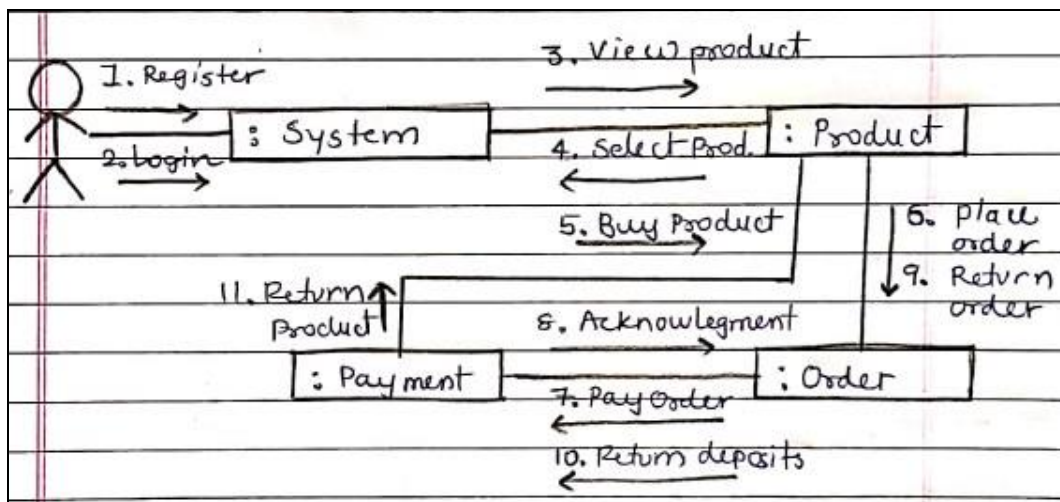 1. Register
3. View product
: System
: Product
2. Login
4. Select Prod.
5. Buy Product
6. Place
order
9. Return
order
11. Return
Product
8. Acknowlegment
: Payment
: Order
7. Pay Order
10. Return deposits